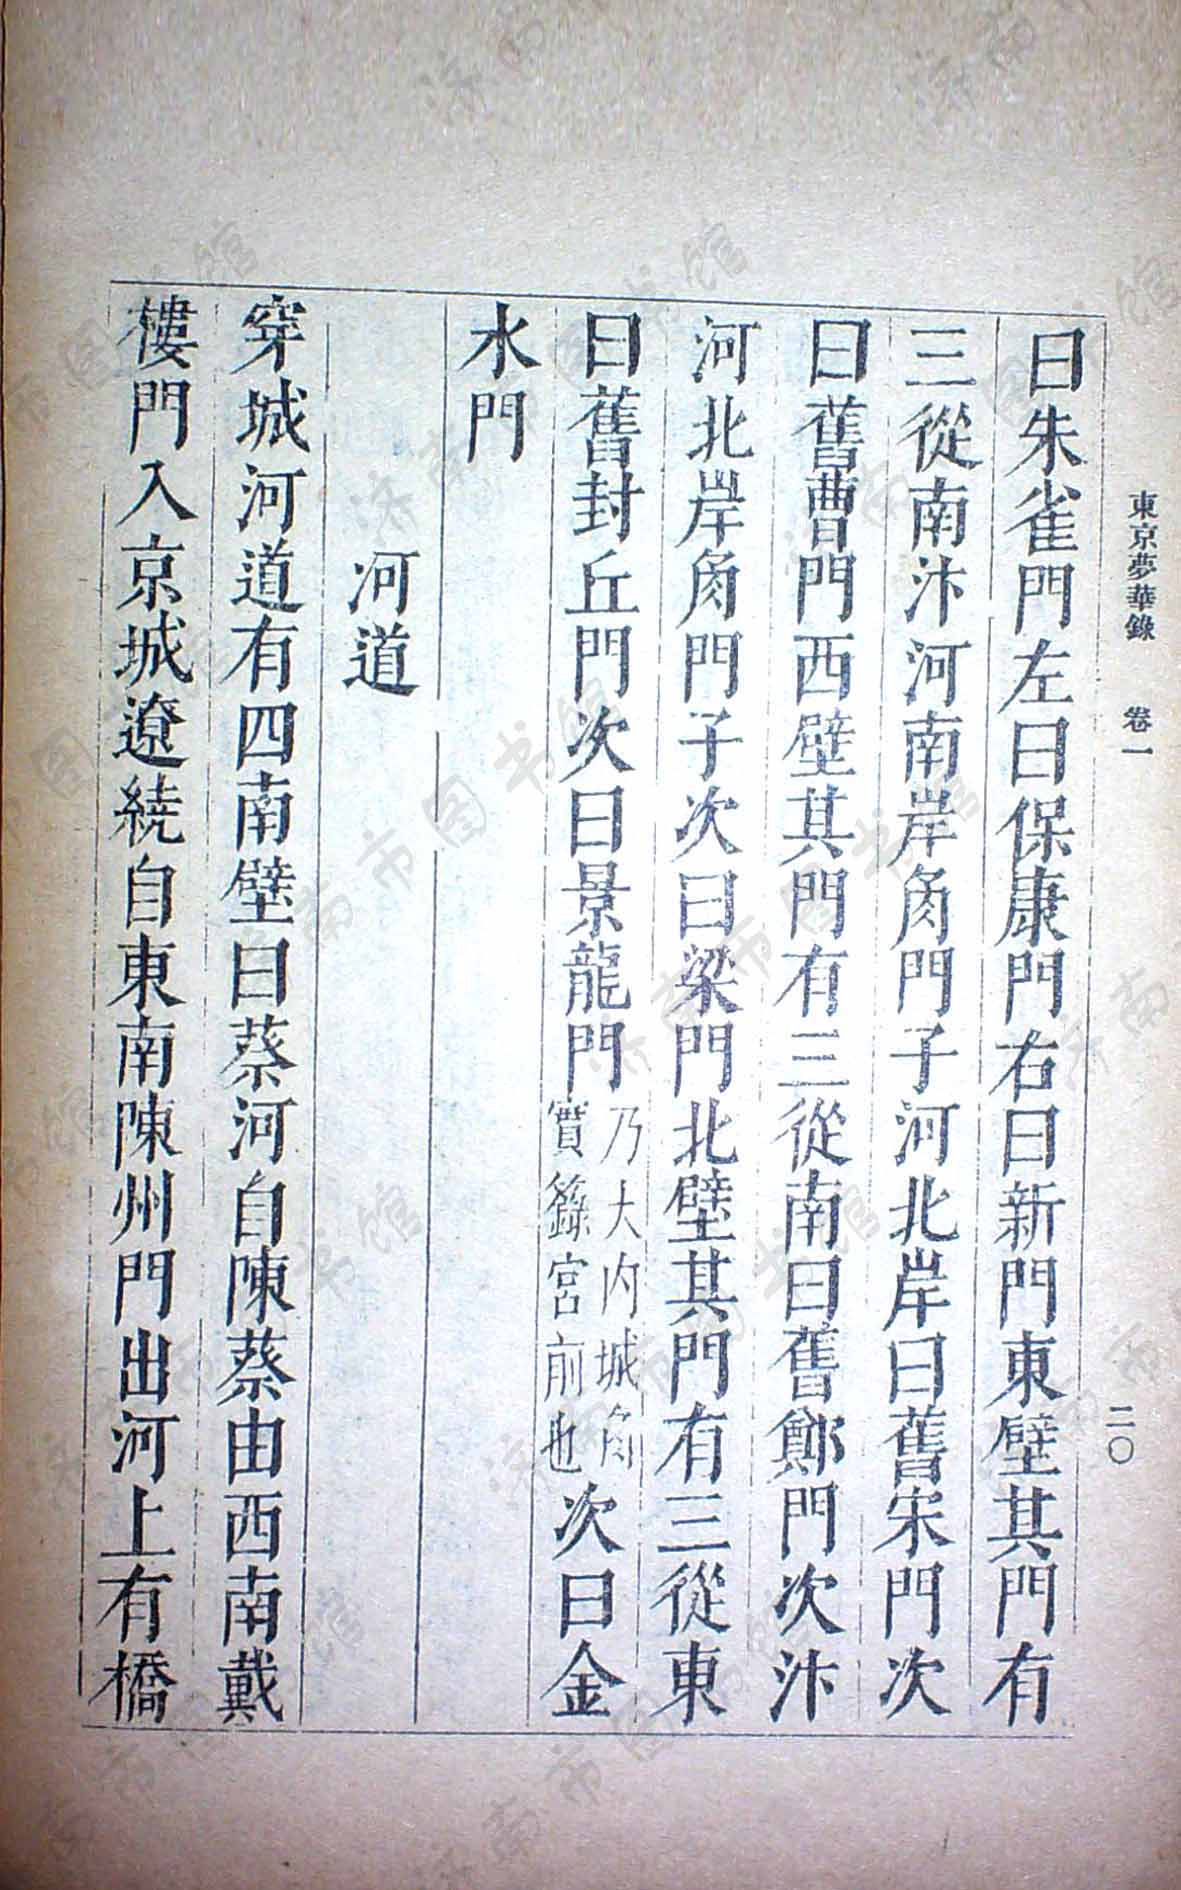 東京夢華錄 卷一
二〇
曰朱雀門左曰保康門右曰新門東壁其門有
三從南汴河南岸角門子河北岸曰舊宋門次
曰舊曹門西壁其門有三從南曰舊鄭門次汴
河北岸角門子次曰梁門北壁其門有三從東
曰舊封丘門次曰景龍門
乃大內城角
寳籙宮前也
次曰金
水門
河道
穿城河道有四南壁曰蔡河自陳蔡由西南戴
樓門入京城遼繞自東南陳州門出河上有橋
济南市图书馆